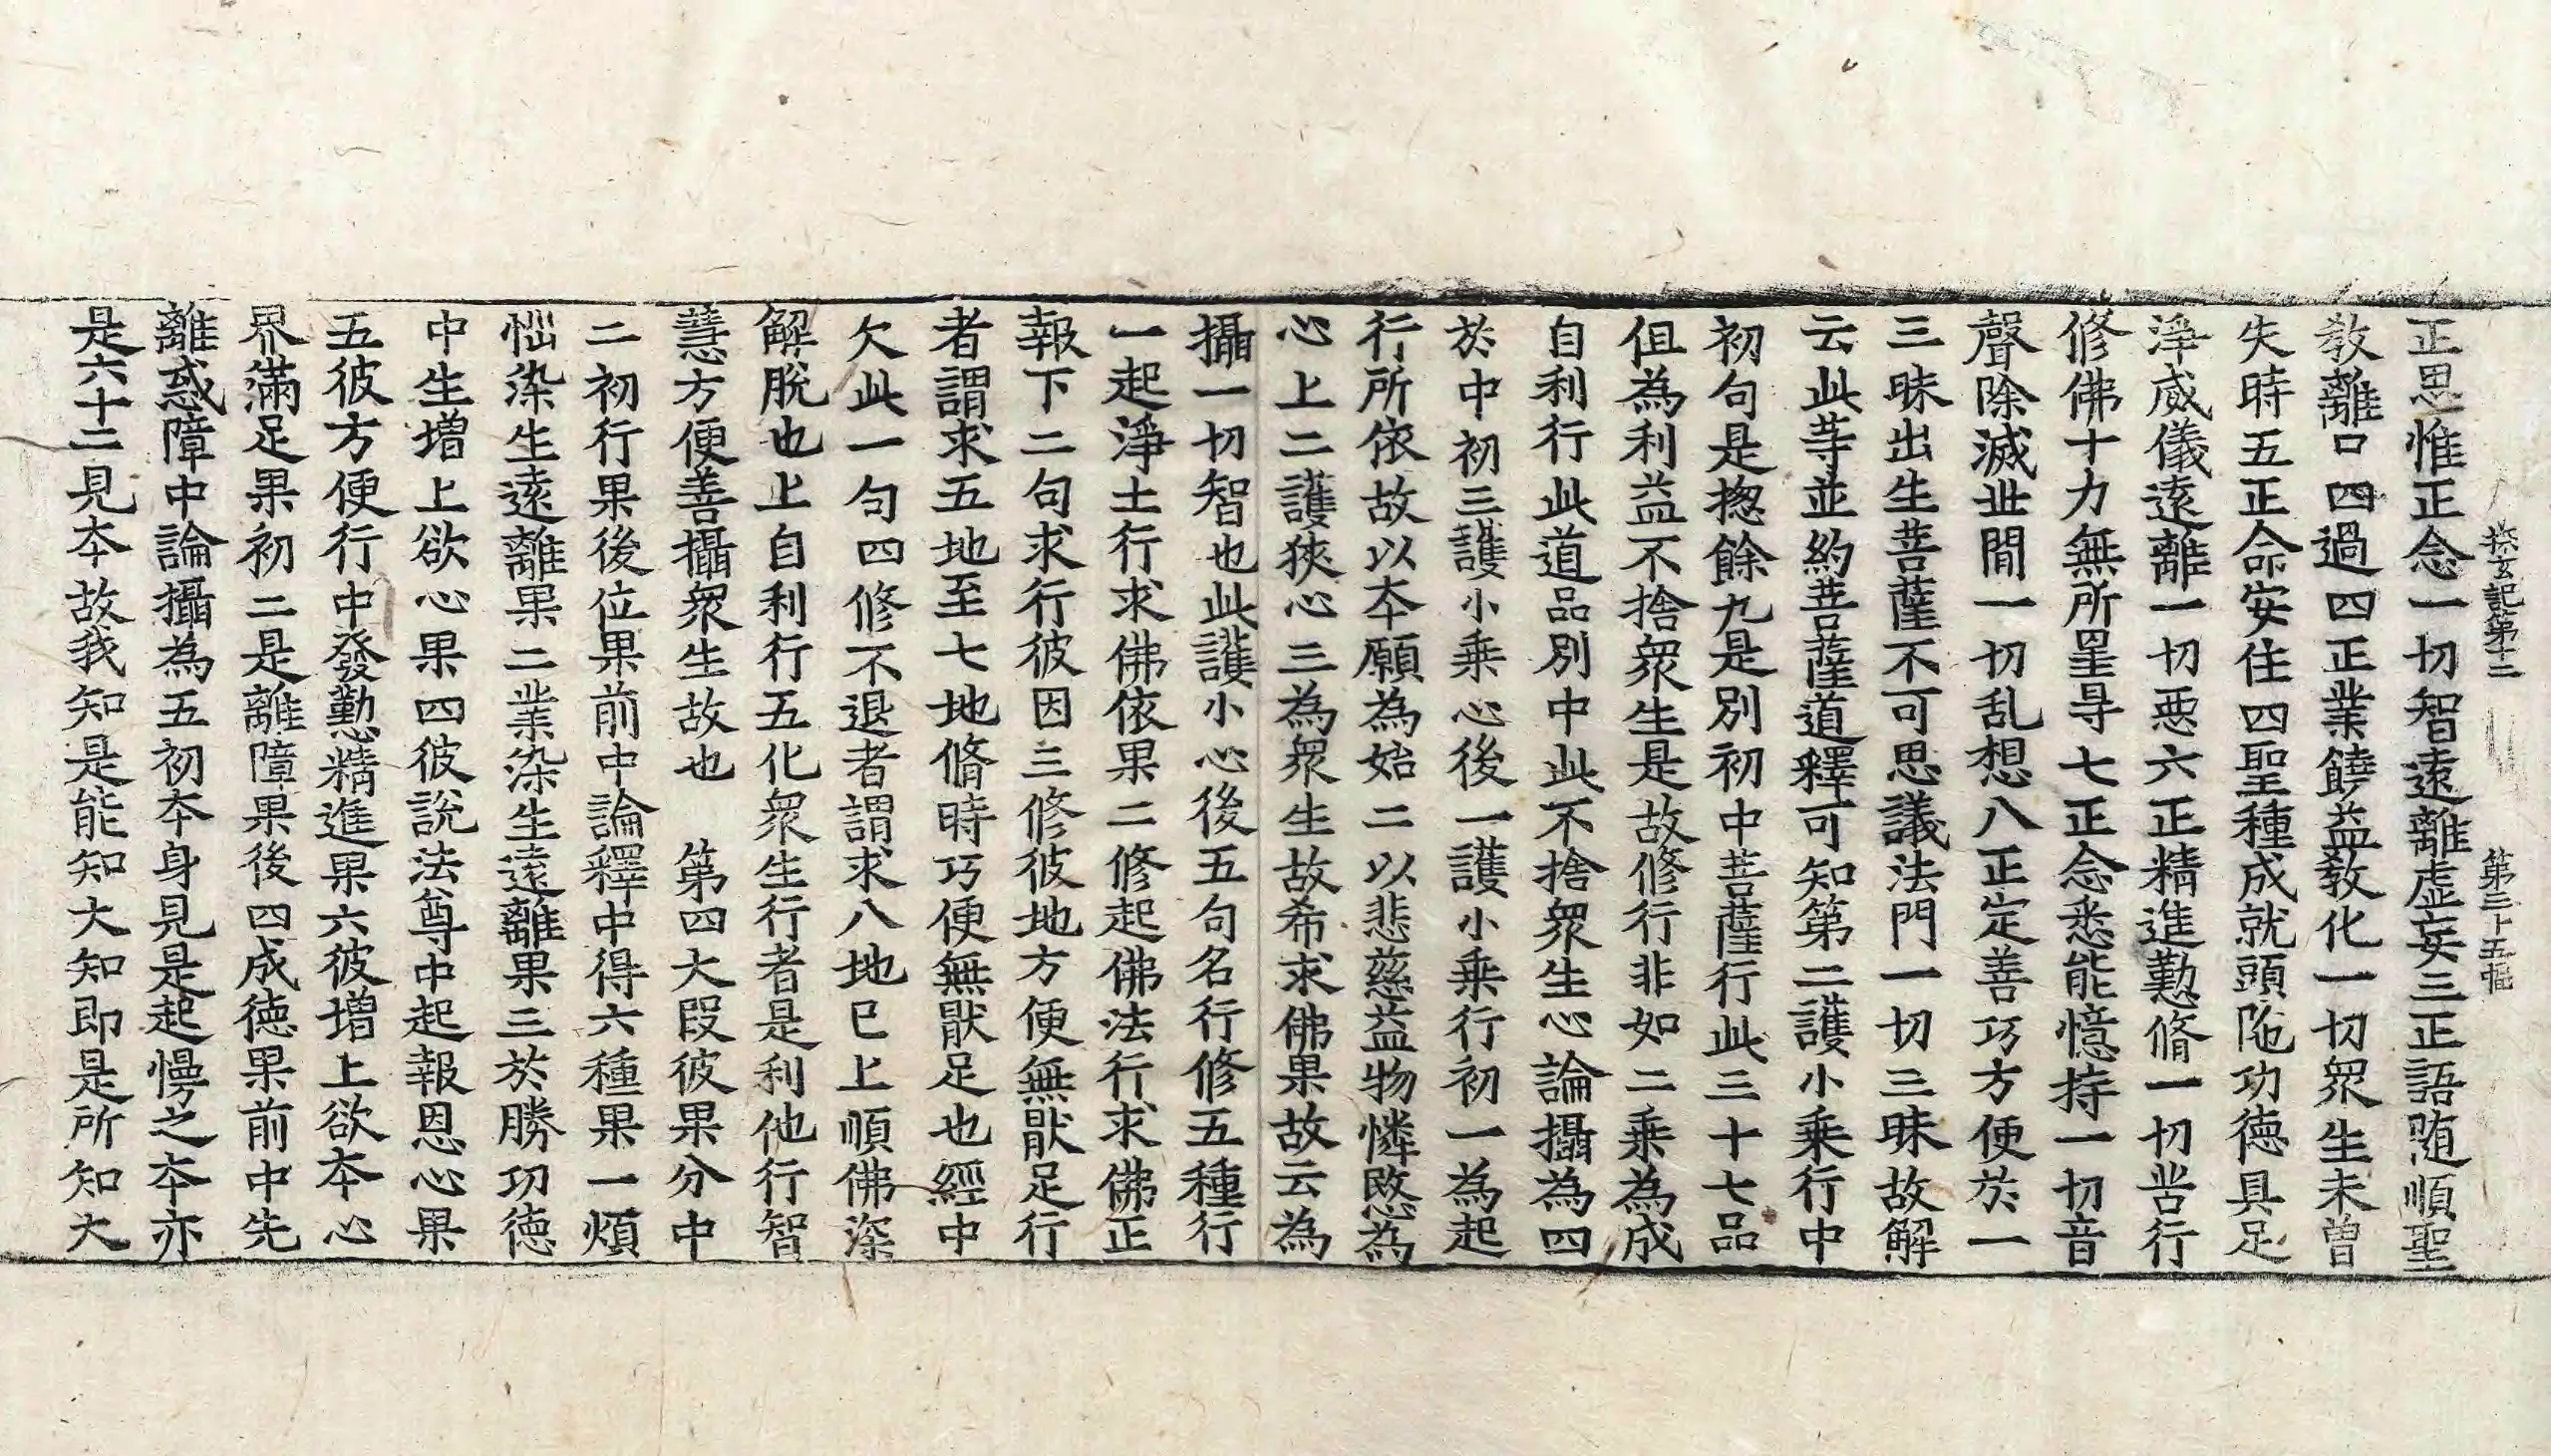 探玄記第十二　第二十五幅
正思惟正念一切智遠離虛妄三正語随順聖
教離口四過四正業饒益教化一切眾生未曾
失時五正命安住四聖種成就頭陁功德具足
淨威儀遠離一切惡六正精進勤脩一切苦行
修佛十力無所罣㝵七正念悉能憶持一切音
聲除滅世間一切乱想八正定善巧方便於一
三昧出生菩薩不可思議法門一切三昧故解
云此等並約菩薩道釋可知第二護小乘行中
初句是揔餘九是別初中菩薩行此三十七品
但為利益不捨眾生是故修行非如二乘為成
自利行此道品別中此不捨眾生心論攝為四
於中初三護小乘心後一護小乘行初一為起
行所依故以本願為始二以悲慈益物憐愍為
心上二護狹心三為眾生故希求佛果故云為
攝一切智也此護小心後五句名行修五種行
一起淨土行求佛依果二修起佛法行求佛正
報下二句求行彼因三修彼地方便無猒足行
者謂求五地至七地脩時巧便無猒足也經中
欠此一句四修不退者謂求八地已上順佛深
解脫也上自利行五化眾生行者是利他行智
慧方便善攝眾生故也　第四大段彼果分中
二初行果後位果前中論釋中得六種果一煩
惱染生遠離果二業染生遠離果三於勝功德
中生增上欲心果四彼說法尊中起報恩心果
五彼方便行中發勤精進果六彼增上欲本心
界滿足果初二是離障果後四成德果前中先
離惑障中論攝為五初本身見是起慢之本亦
是六十二見本故我知是能知大知即是所知大